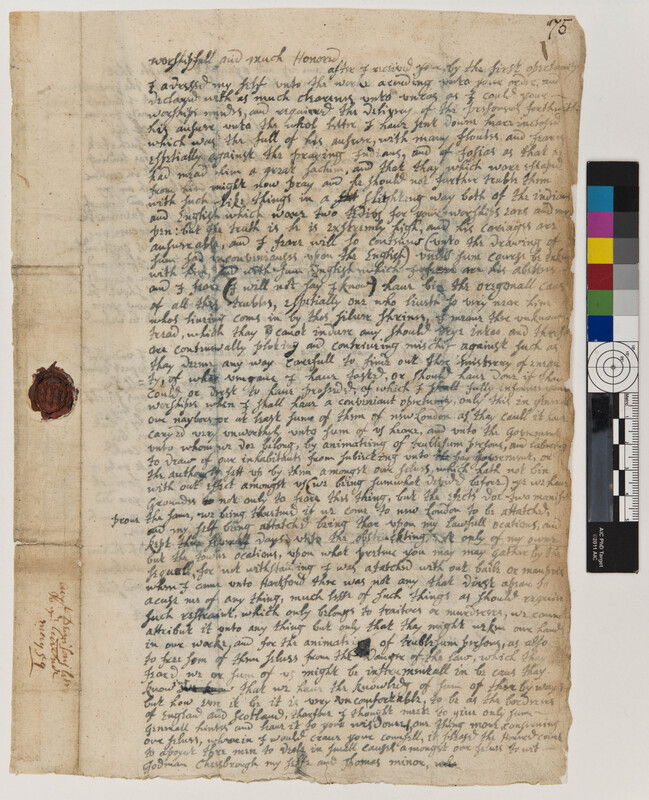 75
worshipfull and much Honored
after I received yours, by the first
I adressed my selfe unto the worke according unto your order, and
declared with as much unto uncas as I could your
worships mindes, and required the delivery of the persones forthwith
his answer unto the whol letter I have sent downe here inclosed
which was the full of his answer, with many floutes and
espetially against the praying Indians, and of Josias as that
he mad him a great Sachim, and that thay which were
from him might now pray and he should not further truble them
with such like things in a slithting way both of the indians
and English which ware two for your worships eares and my
pen: but the truth is he is extremly high, and his cariages are
answerable, and I feare will so continew (unto the drawing of
sum sad inconveniances upon the English) untill sum course be taken
with him, and with sum English which are his abetters
and I feare (I will not say I know) have bin the origenall
of all this trubles, espetially one who liveth so very near him
whos living come in by this silver shrines, I meane this unknown
trad, which thay canot indure any should and therfore
are continually ploting and contriving mischif against such as
thay deeme any way carefull to finde out this mistrery of
ty, of whos I have tasted, or should have don if thay
could or durst to have prosed, of which I shall fully informe your
worships when I shall have a conveniant only this in
our naybors or at least sum of them of new London as thay caull it have
caryed very unworthely unto sum of us here, and unto the Goverment
unto whom we doe belong, by animating of trublesum persons, and
to draw of our inhabitants from subiecting unto Goverment, or
the authority sett up by them amongst our selves, which hath not bin
with out efect amongst us (we being sumwhat before) yet we have
Groundes not only to feare this thing, but the efects doe two manifestly
prove the same, we being thretned if we come to new London to be attached,
and my self being attached being ther upon my lawfull ocations, and
kept ther severall dayes unto the obstruckting not only of my owne
but the townes ocations, upon what pretence you may may gather by the
sequell, for not withstanding I was attached with out baile or mainprise
when I came unto Hartford ther was not any that durst apear to
acuse me of any thing, much lesse of such things as should require
such restraint, which only belongs to traitors or murderers, we cannot
attribut it unto any thing but only that thay might our handes
in our worke, and for the animating of trublesum persons, as also
to free sum of them selves from the danger of the law, which thay
feard we or sum of us might be instrumentall in be caus thay
know that we have the knowledg of sum of ther by ways
but how ever it be it is very uncomfortable, to be as the borderers
of England and Scotland, therfore I thought meete to give only sum
Generall hintes and leave it to your wisdomes, one thing more concerning
our selves, wherein I would crave your counsill, it pleased the Honored court
to apoint thre men to deale in small causes amongst our selves to wit
Goodman Chesbrough my selfe and Thomas minor,
Capt Denisons letter
to ye
Novr 1659